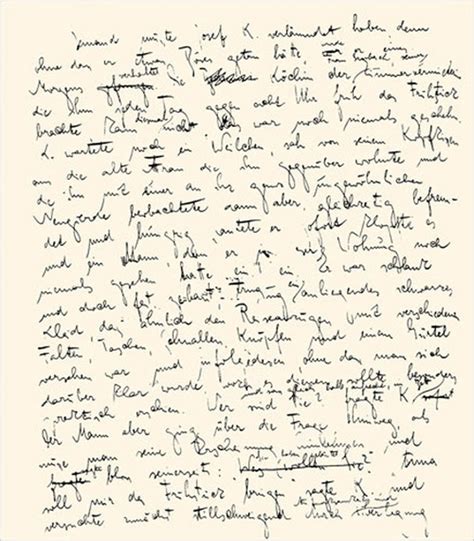 Jemand musste Josef K. verläumdet haben, denn
ohne dass er etwas Böses getan hätte, wurde er eines
Morgens verhaftet. Die Köchin der Zimmervermieterin
die ihm jeden Tag gegen acht Uhr früh das Frühstück
brachte kam diesmal nicht. Das war noch niemals geschehn.
K. wartete noch ein Weilchen, sah von seinem Kopfkissen
aus die alte Frau die ihm gegenüber wohnte und
die ihn mit einer an ihr ganz ungewöhnlichen
Neugierde beobachtete dann aber, gleichzeitig befrem-
det und hungrig, läutete er. Sofort klopfte es
und ein Mann, den er in Wohnung noch
niemals gesehen hatte trat ein. Er war schlank
und doch fest gebaut, er trug ein anliegendes schwarzes
Kleid, das ähnlich den Reiseanzügen mit verschiedenen
Falten, Taschen, Schnallen, Knöpfen und einem Gürtel
versehen war und infolgedessen, ohne dass man sich
darüber klar wurde, wozu es dienen sollte, besonders
praktisch erschien. Wer sind Sie? fragte K. und sass gleich halb aufrecht
Der Mann aber ging über die Frage hinweg, als
müsse man seine Erscheinung hinnehmen und
sagte bloss seinerseits: Sie haben geläutet? Anna
soll mir das Frühstück bringen sagte K. und
versuchte zunächst stillschweigend durch Überlegung